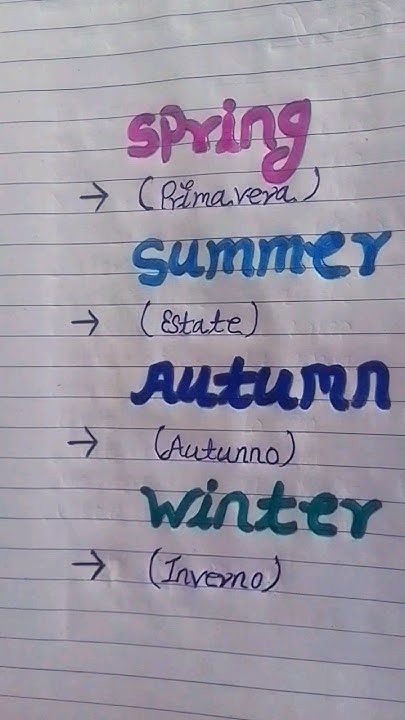 spring
→ (Primavera)
summer
→ (Estate)
Autumn
→ (Autunno)
winter
→ (Inverno)